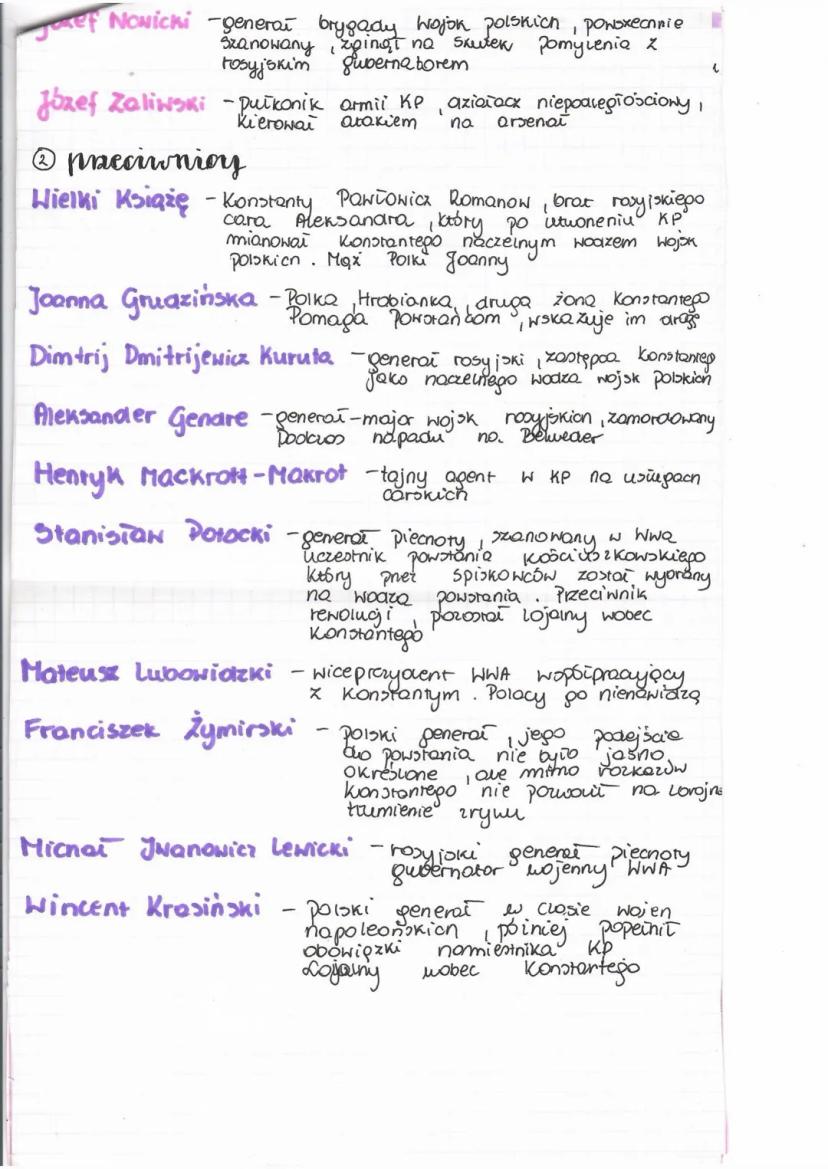 Józef Nowicki - generał brygady wojsk polskich, powszechnie
szanowany, zginął na skutek pomylenia z
rosyjskim gubernatorem
Józef Zaliwski - pułkonik armii KP, działacz niepodległościowy,
kierował atakiem na arsenał
② przeciwnicy
Wielki Książę - Konstanty Pawłowicz Romanow, brat rosyjskiego
cara Aleksandra, który po utworeniu KP
mianował Konstantego naczelnym wodzem wojsk
polskich. Mąż Polki Joanny
Joanna Grudzińska - Polka, Hrobianka, druga żona Konstantego
Pomaga Powstańcom, wskazuje im drogę
Dimitrij Dmitrijewicz Kuruta - generał rosyjski, zastępca Konstantego
jako naczelnego wodza wojsk polskich
Aleksander Gendre - generał-major wojsk rosyjskich, zamordowany
podczas napadu na Belweder
Henryk Mackrott-Makrot - tajny agent w KP na usługach
carskich
Stanisław Potocki - generał piechoty, szanowany w WWA
uczestnik powstania kościuszkowskiego
który przez spiskowców został wybrany
na wodza powstania. Przeciwnik
rewolucji, pozostał lojalny wobec
Konstantego
Mateusz Lubowidzki - wiceprezydent WWA współpracujący
z Konstantym. Polacy go nienawidzą
Franciszek Żymirski - polski generał, jego podejście
do powstania nie było jasno
określone, ale mimo rozkazów
Konstantego nie pozwolił na zbrojne
tłumienie zrywu
Michał Iwanowicz Lewicki - rosyjski generał piechoty
gubernator wojenny WWA
Wincent Krasiński - polski generał w czasie wojen
napoleońskich, później popełnił
obowiązki namiestnika KP
Lojalny wobec Konstantego